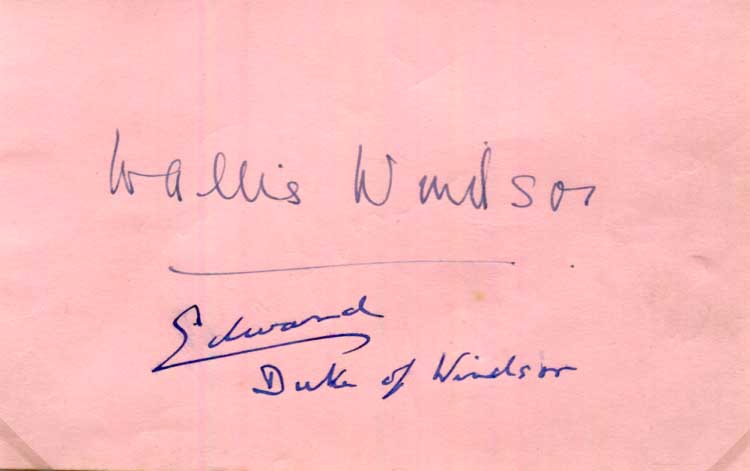 Wallis Windsor
Edward
Duke of Windsor